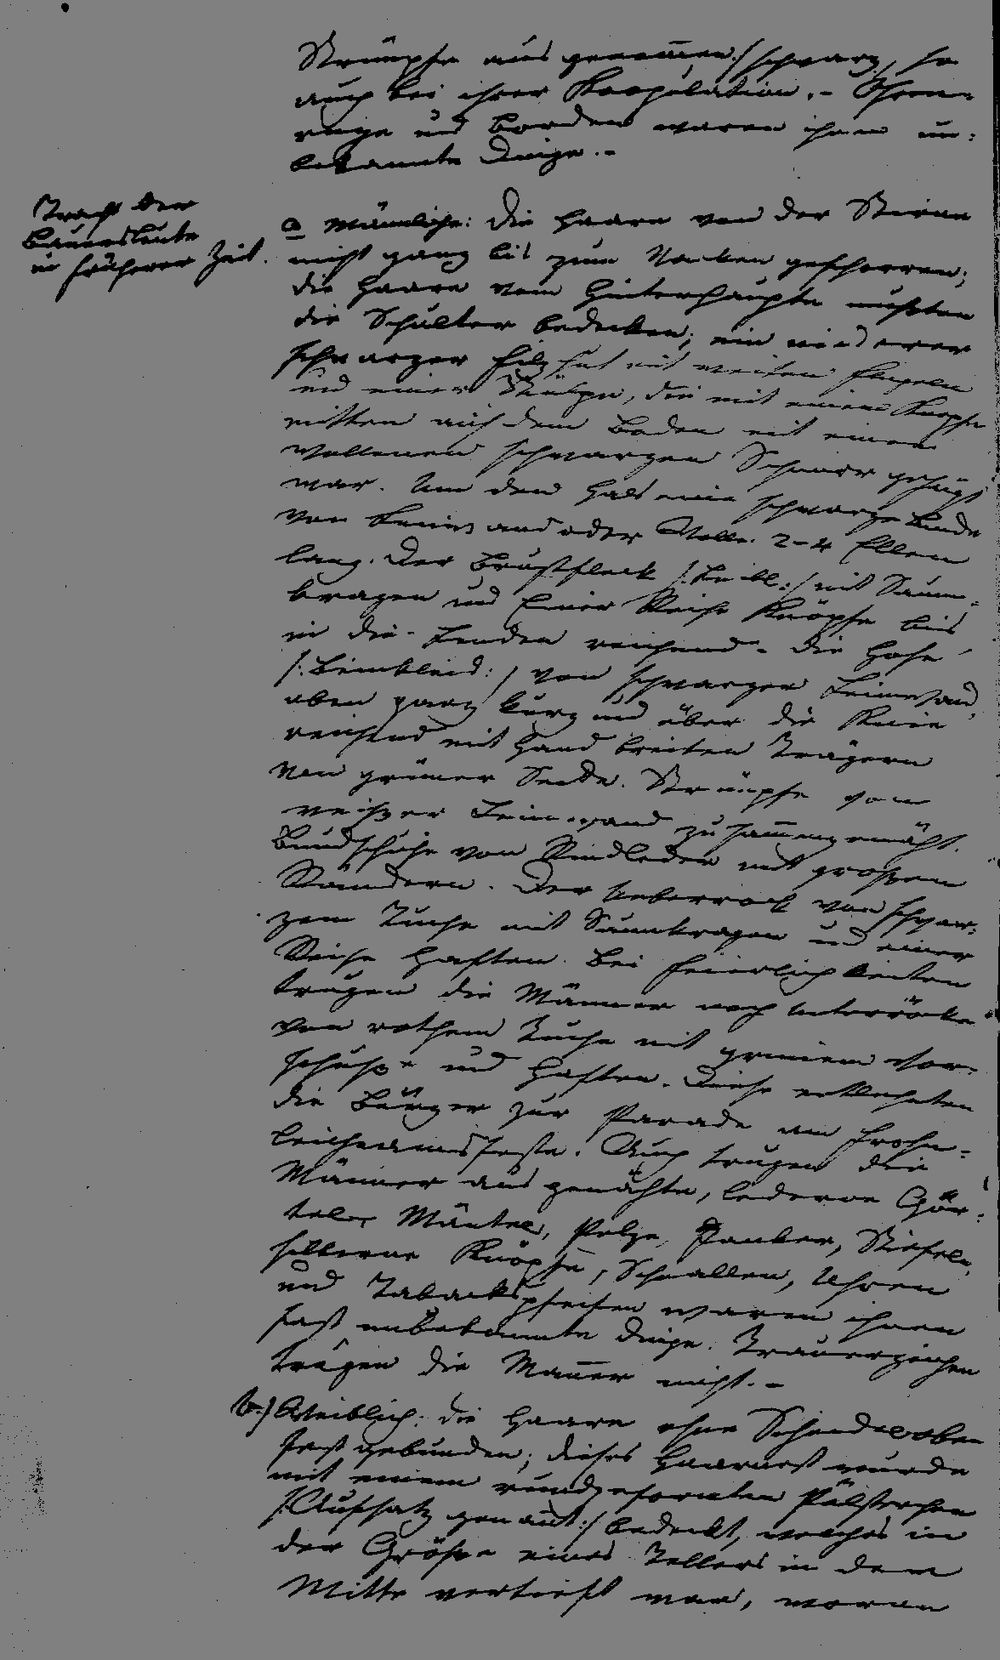 Strümpfe aus genommen:/ schwarz, so
auch bei ihrer Kopulation. - Ohren-
ringe und Borden waren ihnen un-
bekannte Dinge. -
Tracht der
Bauersleute
in früherer Zeit.
a Männliche: Die Haare von der Stirne
nicht ganz bis zum Nacken geschorren;
die Haare vom Hinterhaupte mußten
die Schulter bedecken; ein niederer
schwarzer Filzhut mit weiten Flügeln
und einer Stülpe, die mit einem Knopfe
mitten auf dem Boden mit einer
wollenen schwarzen Schnurr gehängt
war. Um den Hals eine schwarze Binde
von Leinwand oder Wolle 2-4 Ellen
lang. Der Brustfleck /:Leibl:/ mit Saum-
kragen und Einer Reihe Knöpfe bis
in die Lenden reichend. - Die Hose
/:Beinkleid:/ von schwarzer Leinwand,
oben ganz kurz und über die Knie
reichend mit Hand breiten Trägern
von grüner Seide. Strümpfe von
weißer Leinwand zusammengenäht.
Bundschuhe von Rindleder mit großen
Rändern. Der Ueberrock von schwar-
zem Tuche mit Saumkragen und einer
Reihe Haften. Bei Feierlichkeiten
trugen die Männer noch Unterröcke
von rothem Tuche mit grünem Vor-
schuße und Haften. Diese entlehnten
die Bürger zur Parade am Frohn-
leichnamsfeste. Auch trugen die
Männer ausgenähte, lederne Gür-
tel, Mäntel, Pelze, Stiefel,
silberne Knöpfe, Schnallen, Uhren
und Tabackspfeifen waren ihnen
fast unbekannte Dinge. Trauerzeichen
trugen die Männer nicht. -
b.) Weiblich: die Haare ohne Scheidel oben
fest gebunden; dieses Haarnest wurde
mit einem rundgeformten Pölsterchen
/:Aufsatz genannt:/ bedeckt, welches in
der Größe eines Tellers in dem
Mitte vertieft war, woran